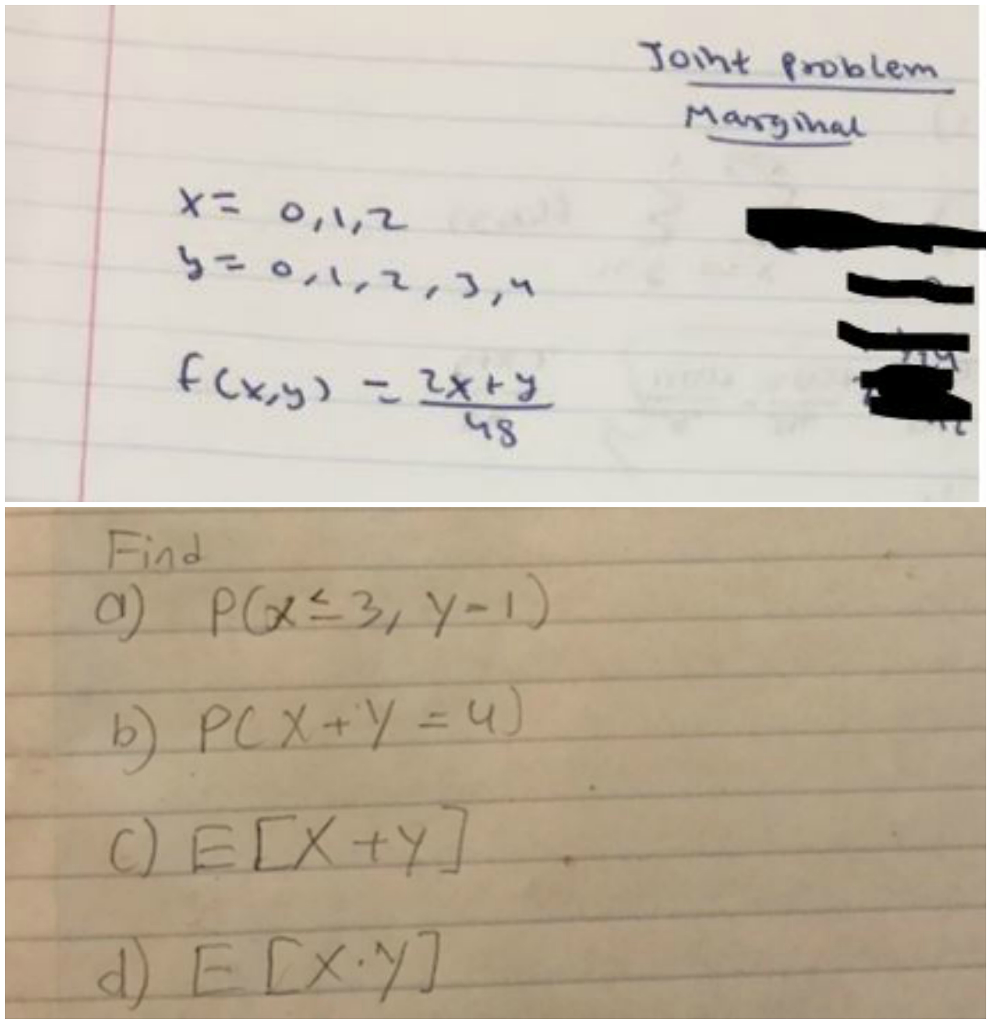 Joint Problem
Marginal
x = 0,1,2
y = 0,1,2,3,4
f(x,y) = 2x+y
48
Find
a) P(X≤3, Y=1)
b) P(X+Y=4)
c) E[X+Y]
d) E[X·Y]